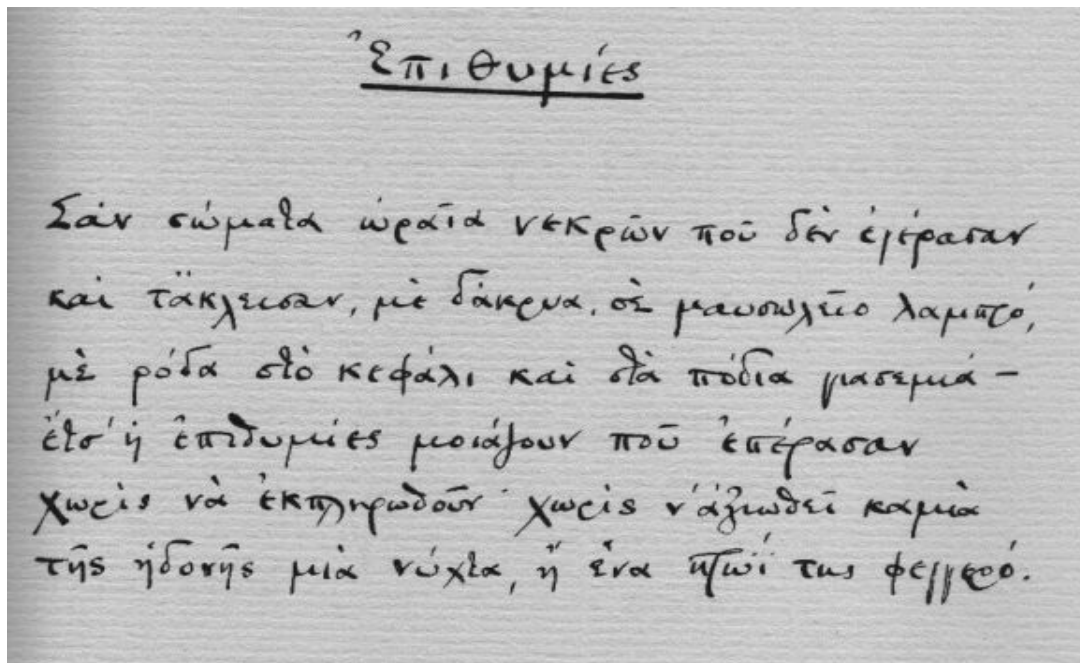 Ἐπιθυμίες
Σὰν σώματα ὡραῖα νεκρῶν ποῦ δὲν ἐγέρασαν
καὶ τἄκλεισαν, μὲ δάκρυα, σὲ μαυσωλεῖο λαμπρό,
μὲ ρόδα στὸ κεφάλι καὶ στὰ πόδια γιασεμιὰ —
ἔτσ' ἡ ἐπιθυμίες μοιάζουν ποῦ ἐπέρασαν
χωρὶς νὰ ἐκπληρωθοῦν· χωρὶς ν' ἀξιωθεῖ καμιὰ
τῆς ἡδονῆς μιὰ νύχτα, ἢ ἕνα πρωΐ της φεγγερό.